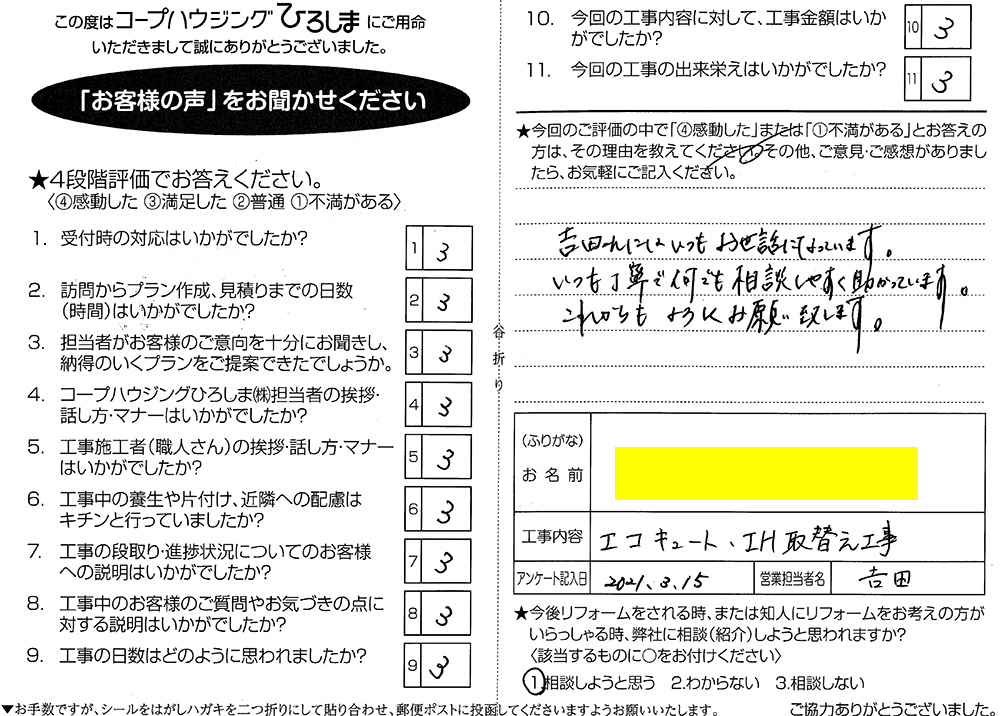 この度はコープハウジングひろしまにご用命
いただきまして誠にありがとうございました。
「お客様の声」をお聞かせください
★4段階評価でお答えください。
〈④感動した ③満足した ②普通 ①不満がある〉
1. 受付時の対応はいかがでしたか?
1 3
2. 訪問からプラン作成、見積りまでの日数
(時間)はいかがでしたか?
2 3
3. 担当者がお客様のご意向を十分にお聞きし、
納得のいくプランをご提案できたでしょうか。
3 3
4. コープハウジングひろしま㈱担当者の挨拶・
話し方・マナーはいかがでしたか?
4 3
5. 工事施工者(職人さん)の挨拶・話し方・マナー
はいかがでしたか?
5 3
6. 工事中の養生や片付け、近隣への配慮は
キチンと行っていましたか?
6 3
7. 工事の段取り・進捗状況についてのお客様
への説明はいかがでしたか?
7 3
8. 工事中のお客様のご質問やお気づきの点に
対する説明はいかがでしたか?
8 3
9. 工事の日数はどのように思われましたか?
9 3
▼お手数ですが、シールをはがしハガキを二つ折りにして貼り合わせ、郵便ポストに投函してくださいますようお願いいたします。
谷折り
10. 今回の工事内容に対して、工事金額はいか
がでしたか?
10 3
11. 今回の工事の出来栄えはいかがでしたか?
11 3
★今回のご評価の中で「④感動した」または「①不満がある」とお答えの
方は、その理由を教えてください。その他、ご意見・ご感想がありまし
たら、お気軽にご記入ください。
吉田さんにはいつもお世話になっています。
いつも丁寧で何でも相談しやすく助かっています。
これからもよろしくお願い致します。
(ふりがな)
お名前
工事内容 エコキュート、IH取替え工事
アンケート記入日 2021.3.15 営業担当者名 吉田
★今後リフォームをされる時、または知人にリフォームをお考えの方が
いらっしゃる時、弊社に相談(紹介)しようと思われますか?
〈該当するものに○をお付けください〉
1.相談しようと思う 2.わからない 3.相談しない
ご協力ありがとうございました。